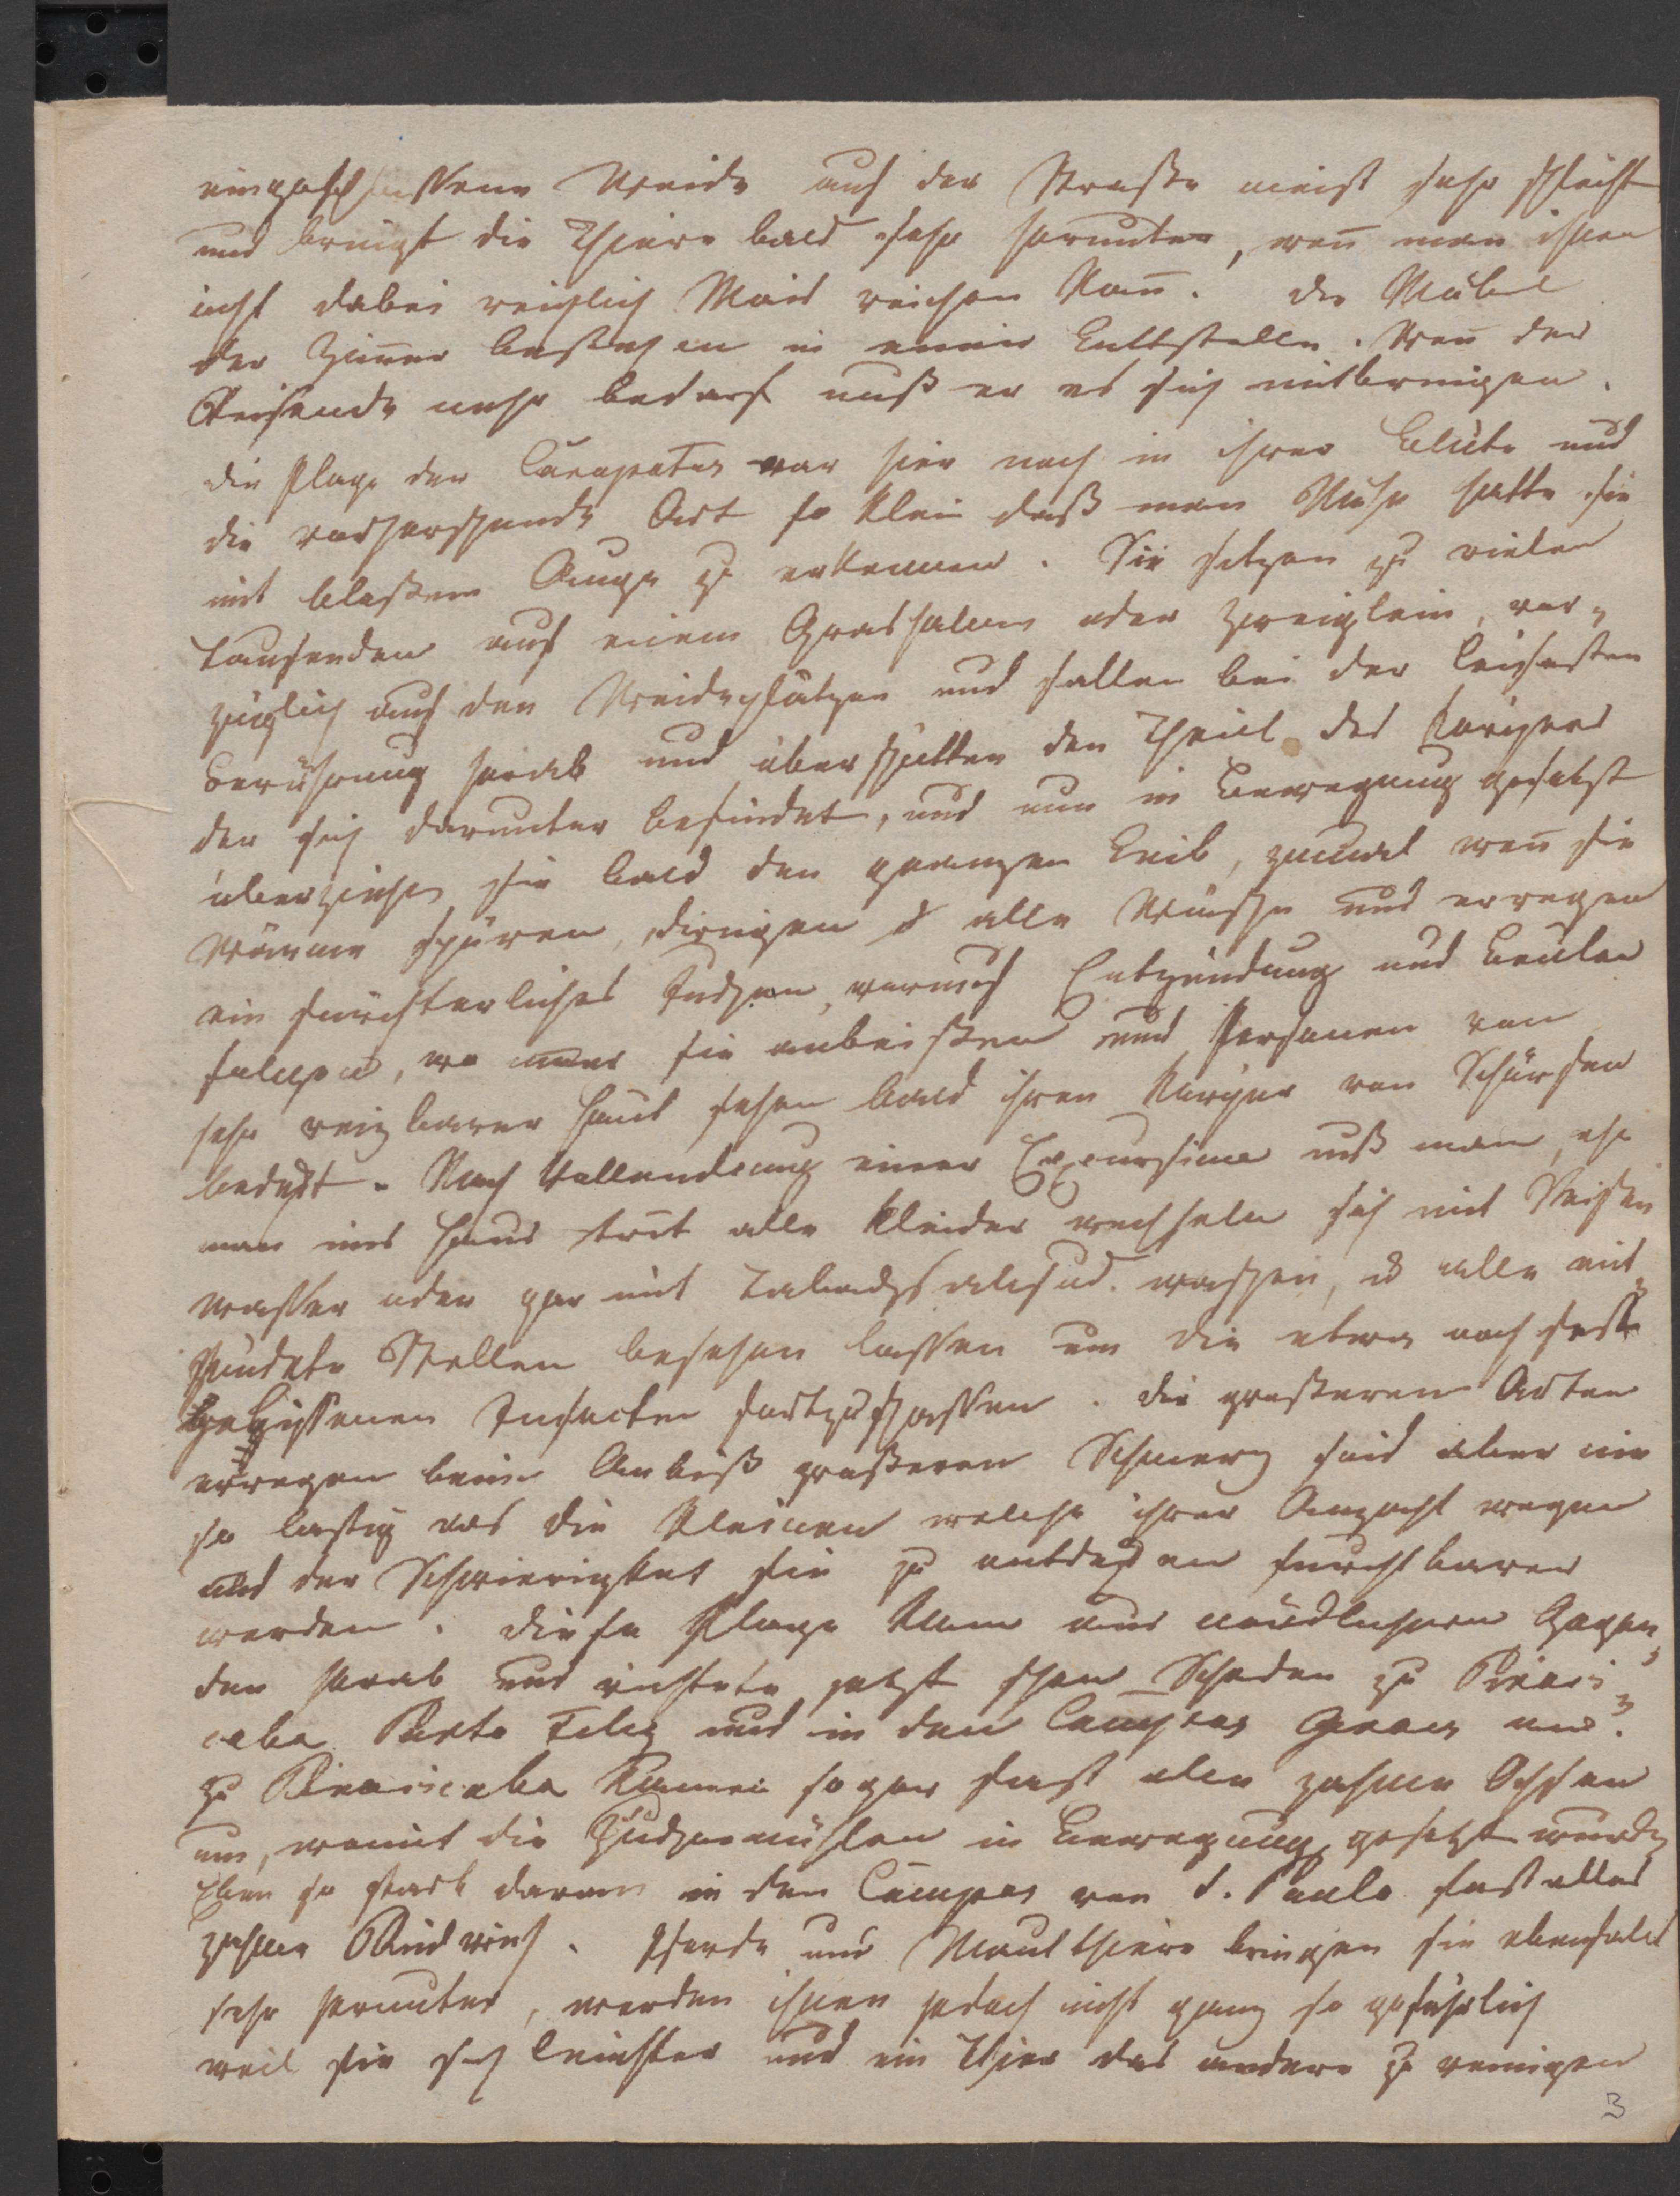 eingeschlossene Weide auf der Straße meist sehr schlecht
und bringt die Thiere bald sehr herunter, weñ man ihnen
nicht dabei reichlich Mais reichen kañ. Die Möbel
der Zim̃er bestehen in einer Bettstelle. Weñ der
Reisende mehr bedarf muß er es sich mitbringen.
Die Plage der Carapatos war hier noch in ihrer Blüte und
die vorherrschende Art so klein daß man Mühe hatte sie
mit bloßem Auge zu erkennen. Sie sitzen zu vielen
Tausenden auf einem Grashalm oder Zweiglein, vor-
züglich auf den Weideplätzen und fallen bei der leisesten
Berührung herab und überschütten den Theil des Körpers
der sich darunter befindet, und nun in Bewegung gesetzt
überziehen sie bald den ganzen Leib, zumal weñ sie
Wärme spüren, dringen d alle Wäsche und erregen
ein fürchterliches Jucken, worauf Entzündung und Beulen
folgen, wo immer sie anbeißen und Personen von
sehr reizbarer Haut sehen bald ihren Körper von Schürfen
bedeckt. Nach Vollendung einer Excursion muß man, ehe
man ins Haus tritt alle Kleider wechseln sich mit Seifen
wasser oder gar mit Tabacksabsud. waschen, & alle ent-
zündete Stellen besehen lassen um die etwa noch fest
gebissenen Insecten fortzuschaffen. Die größeren Arten
erregen beim Anbiß größeren Schmerz sind aber nie
so lästig als die kleinen welche ihrer Anzahl wegen
und der Schwierigkeit sie zu entdecken furchtbarer
werden. Diese Plage kam aus nördlichern Gegen-
den herab und richtete jetzt schon Schaden zu Piraci-
caba Porto Feliz und in den Campos Geraes an.
Zu Piracicaba kamen sogar fast alle zahme Ochsen
um, womit die Zuckermühlen in Bewegung gesetzt wurden
Eben so starb daran in den Campos von S. Paulo fast alles
zahme Rindvieh. Pferde und Maulthiere bringen sie ebenfalls
sehr herunter, werden ihnen jedoch nicht ganz so gefährlich
weil sie sich leichter und ein Thier das andere zu reinigen
3